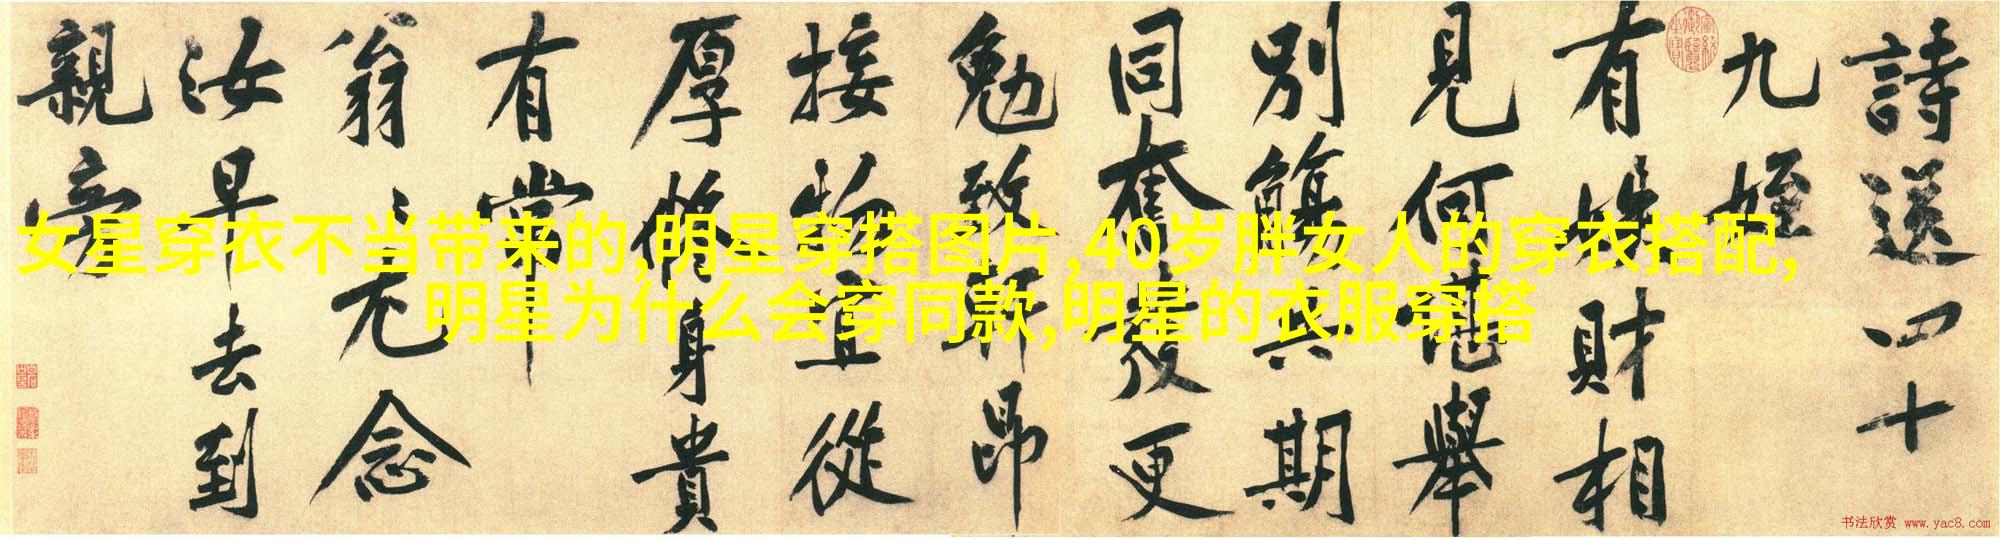 詩送四十
九姪
有財相
見何堪舉
別觴共期
同奮發更
勉致軒昂
接物宜從
厚脩身貴
有常
翁〻无念
汝早去到
親旁
女星穿衣不当带来的,明星穿搭图片,40岁胖女人的穿衣搭配,
明星为什么会穿同款,明星的衣服穿搭
书法欣赏 www.yac8.com